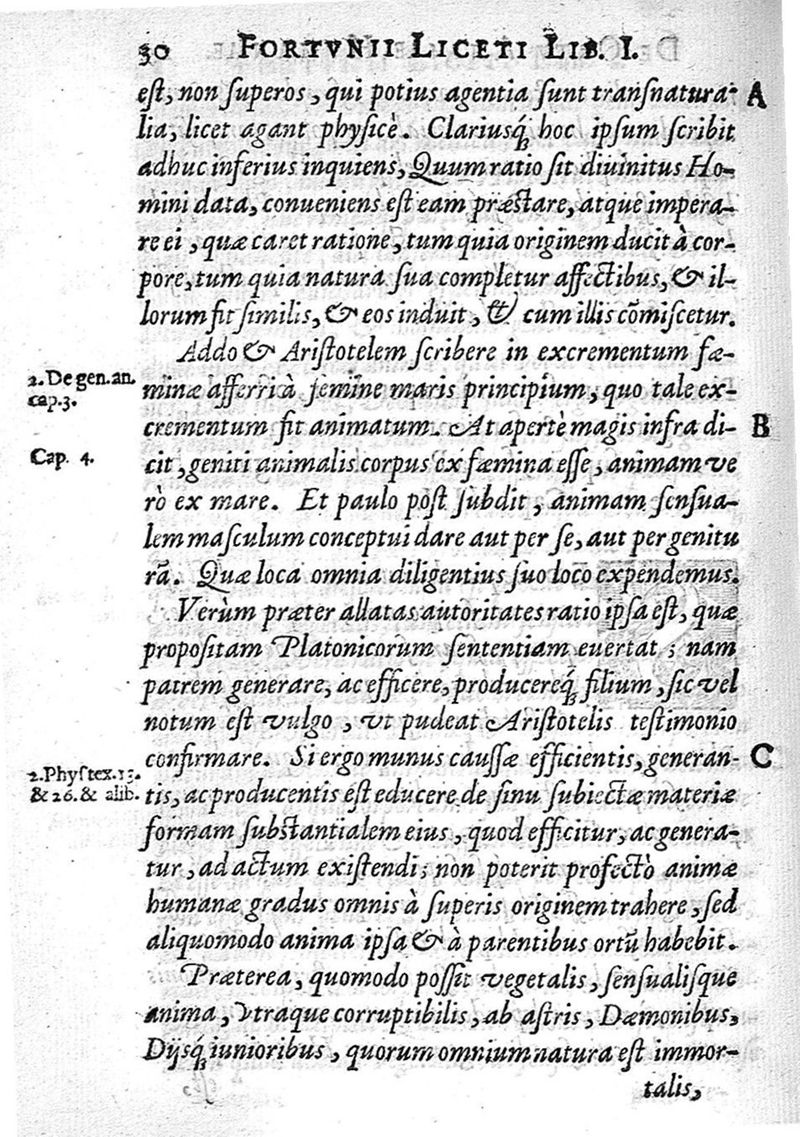 30 FORTVNII LICETI LIB. I.
eſt, non ſuperos, qui potius agentia ſunt tranſnatura- A
lia, licet agant phyſicè. Clariusq́ hoc ipſum ſcribit
adhuc inferius inquiens, Quum ratio ſit diuinitus Ho-
mini data, conueniens eſt eam præſtare, atque impera-
re ei, quæ caret ratione, tum quia originem ducit à cor-
pore, tum quia natura ſua completur affectibus, & il-
lorum fit ſimilis, & eos induit, & cum illis cōmiſcetur.
Addo & Ariſtotelem ſcribere in excrementum fæ-
2. De gen. an. cap. 3.
minæ afferri à ſemine maris principium, quo tale ex-
crementum fit animatum. At apertè magis infra di- B
Cap. 4.
cit, geniti animalis corpus ex fæmina eſſe, animam ve
rò ex mare. Et paulo poſt ſubdit, animam ſenſua-
lem maſculum conceptui dare aut per ſe, aut per genitu
rā. Quæ loca omnia diligentius ſuo loco expendemus.
Verùm præter allatas autoritates ratio ipſa eſt, quæ
propoſitam Platonicorum ſententiam euertat; nam
patrem generare, ac efficere, producereq́ filium, ſic vel
notum eſt vulgo, vt pudeat Ariſtotelis teſtimonio
confirmare. Si ergo munus cauſſæ efficientis, generan- C
2. Phyſ tex. 13.
& 26. & alib.
tis, ac producentis eſt educere de ſinu ſubiectæ materiæ
formam ſubſtantialem eius, quod efficitur, ac genera-
tur, ad actum exiſtendi; non poterit profectò animæ
humanæ gradus omnis à ſuperis originem trahere, ſed
aliquomodo anima ipſa & à parentibus ortū habebit.
Præterea, quomodo poſſit vegetalis, ſenſualiſque
anima, vtraque corruptibilis, ab aſtris, Dæmonibus,
Dijsq́ iunioribus, quorum omnium natura eſt immor-
talis,